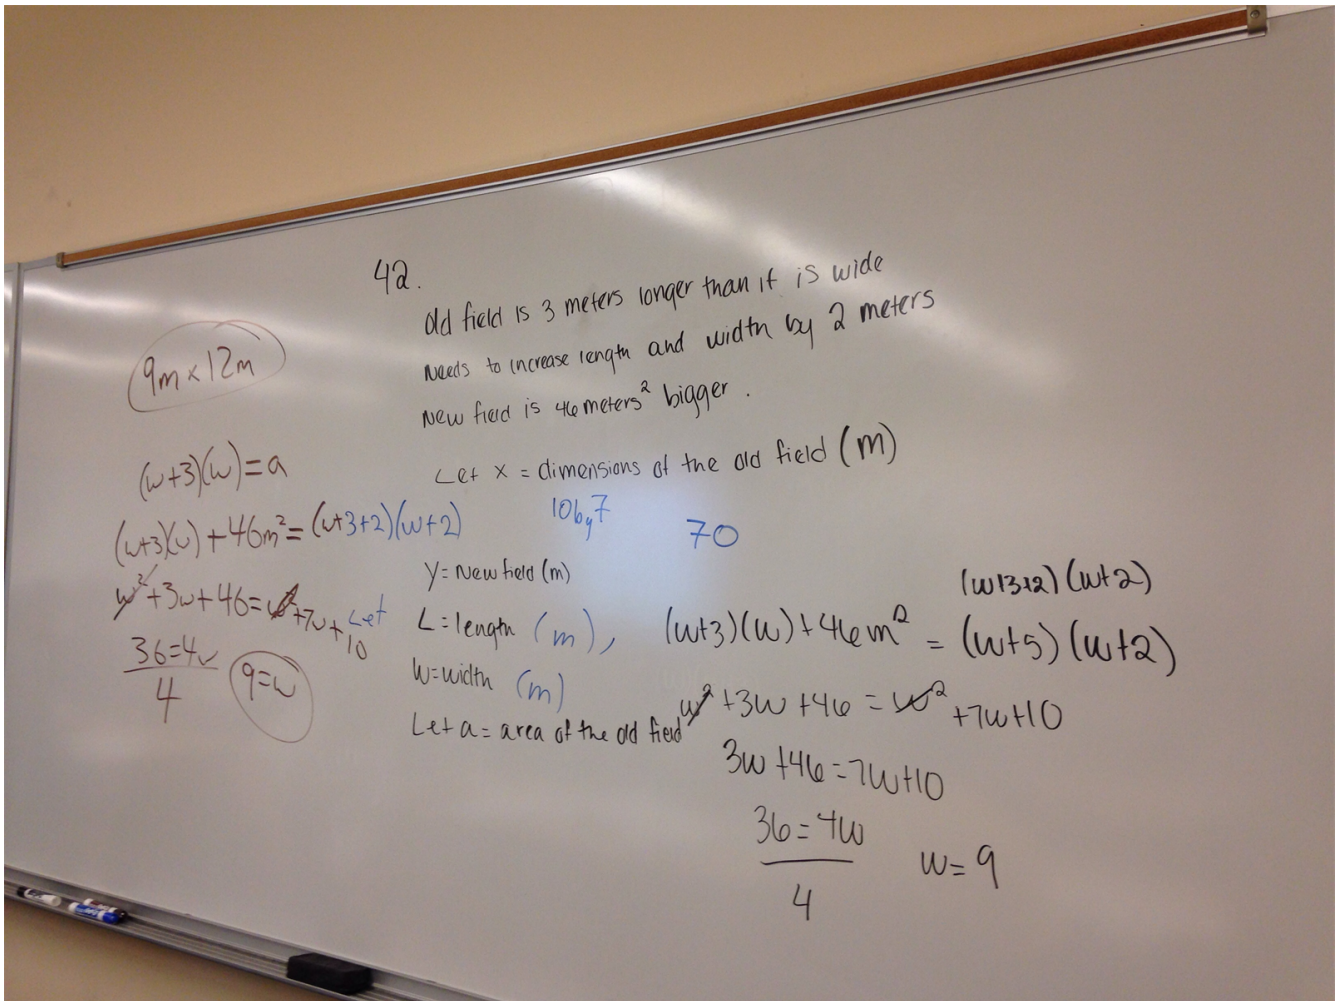 42.
Old field is 3 meters longer than it is wide
Needs to increase length and width by 2 meters
New field is 46 meters² bigger.
Let x = dimensions of the old field (m)
10 by 7
70
y = New field (m)
Let
L = length (m),
W = width (m)
Let a = area of the old field
9m x 12m
(w+3)(w) = a
(w+3)(w) + 46m² = (w+3+2)(w+2)
w² + 3w + 46 = w² + 7w + 10
36 = 4w
4
9 = w
(w+3+2)(w+2)
(w+3)(w) + 46m² = (w+5)(w+2)
w² + 3w + 46 = w² + 7w + 10
3w + 46 = 7w + 10
36 = 4w
4
w = 9